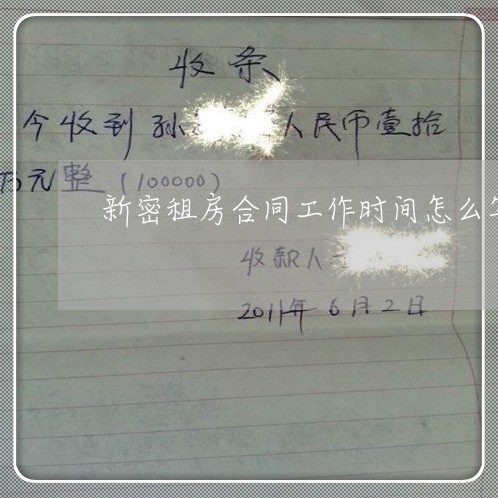 收条
今收到孙 人民币壹拾
万元整(100000)
新密租房合同工作时间怎么
收款人
2011年6月2日